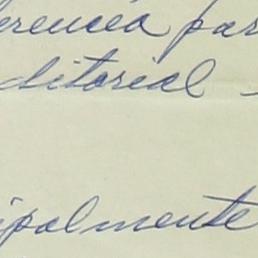 erencia par
ditorial
ipalmente